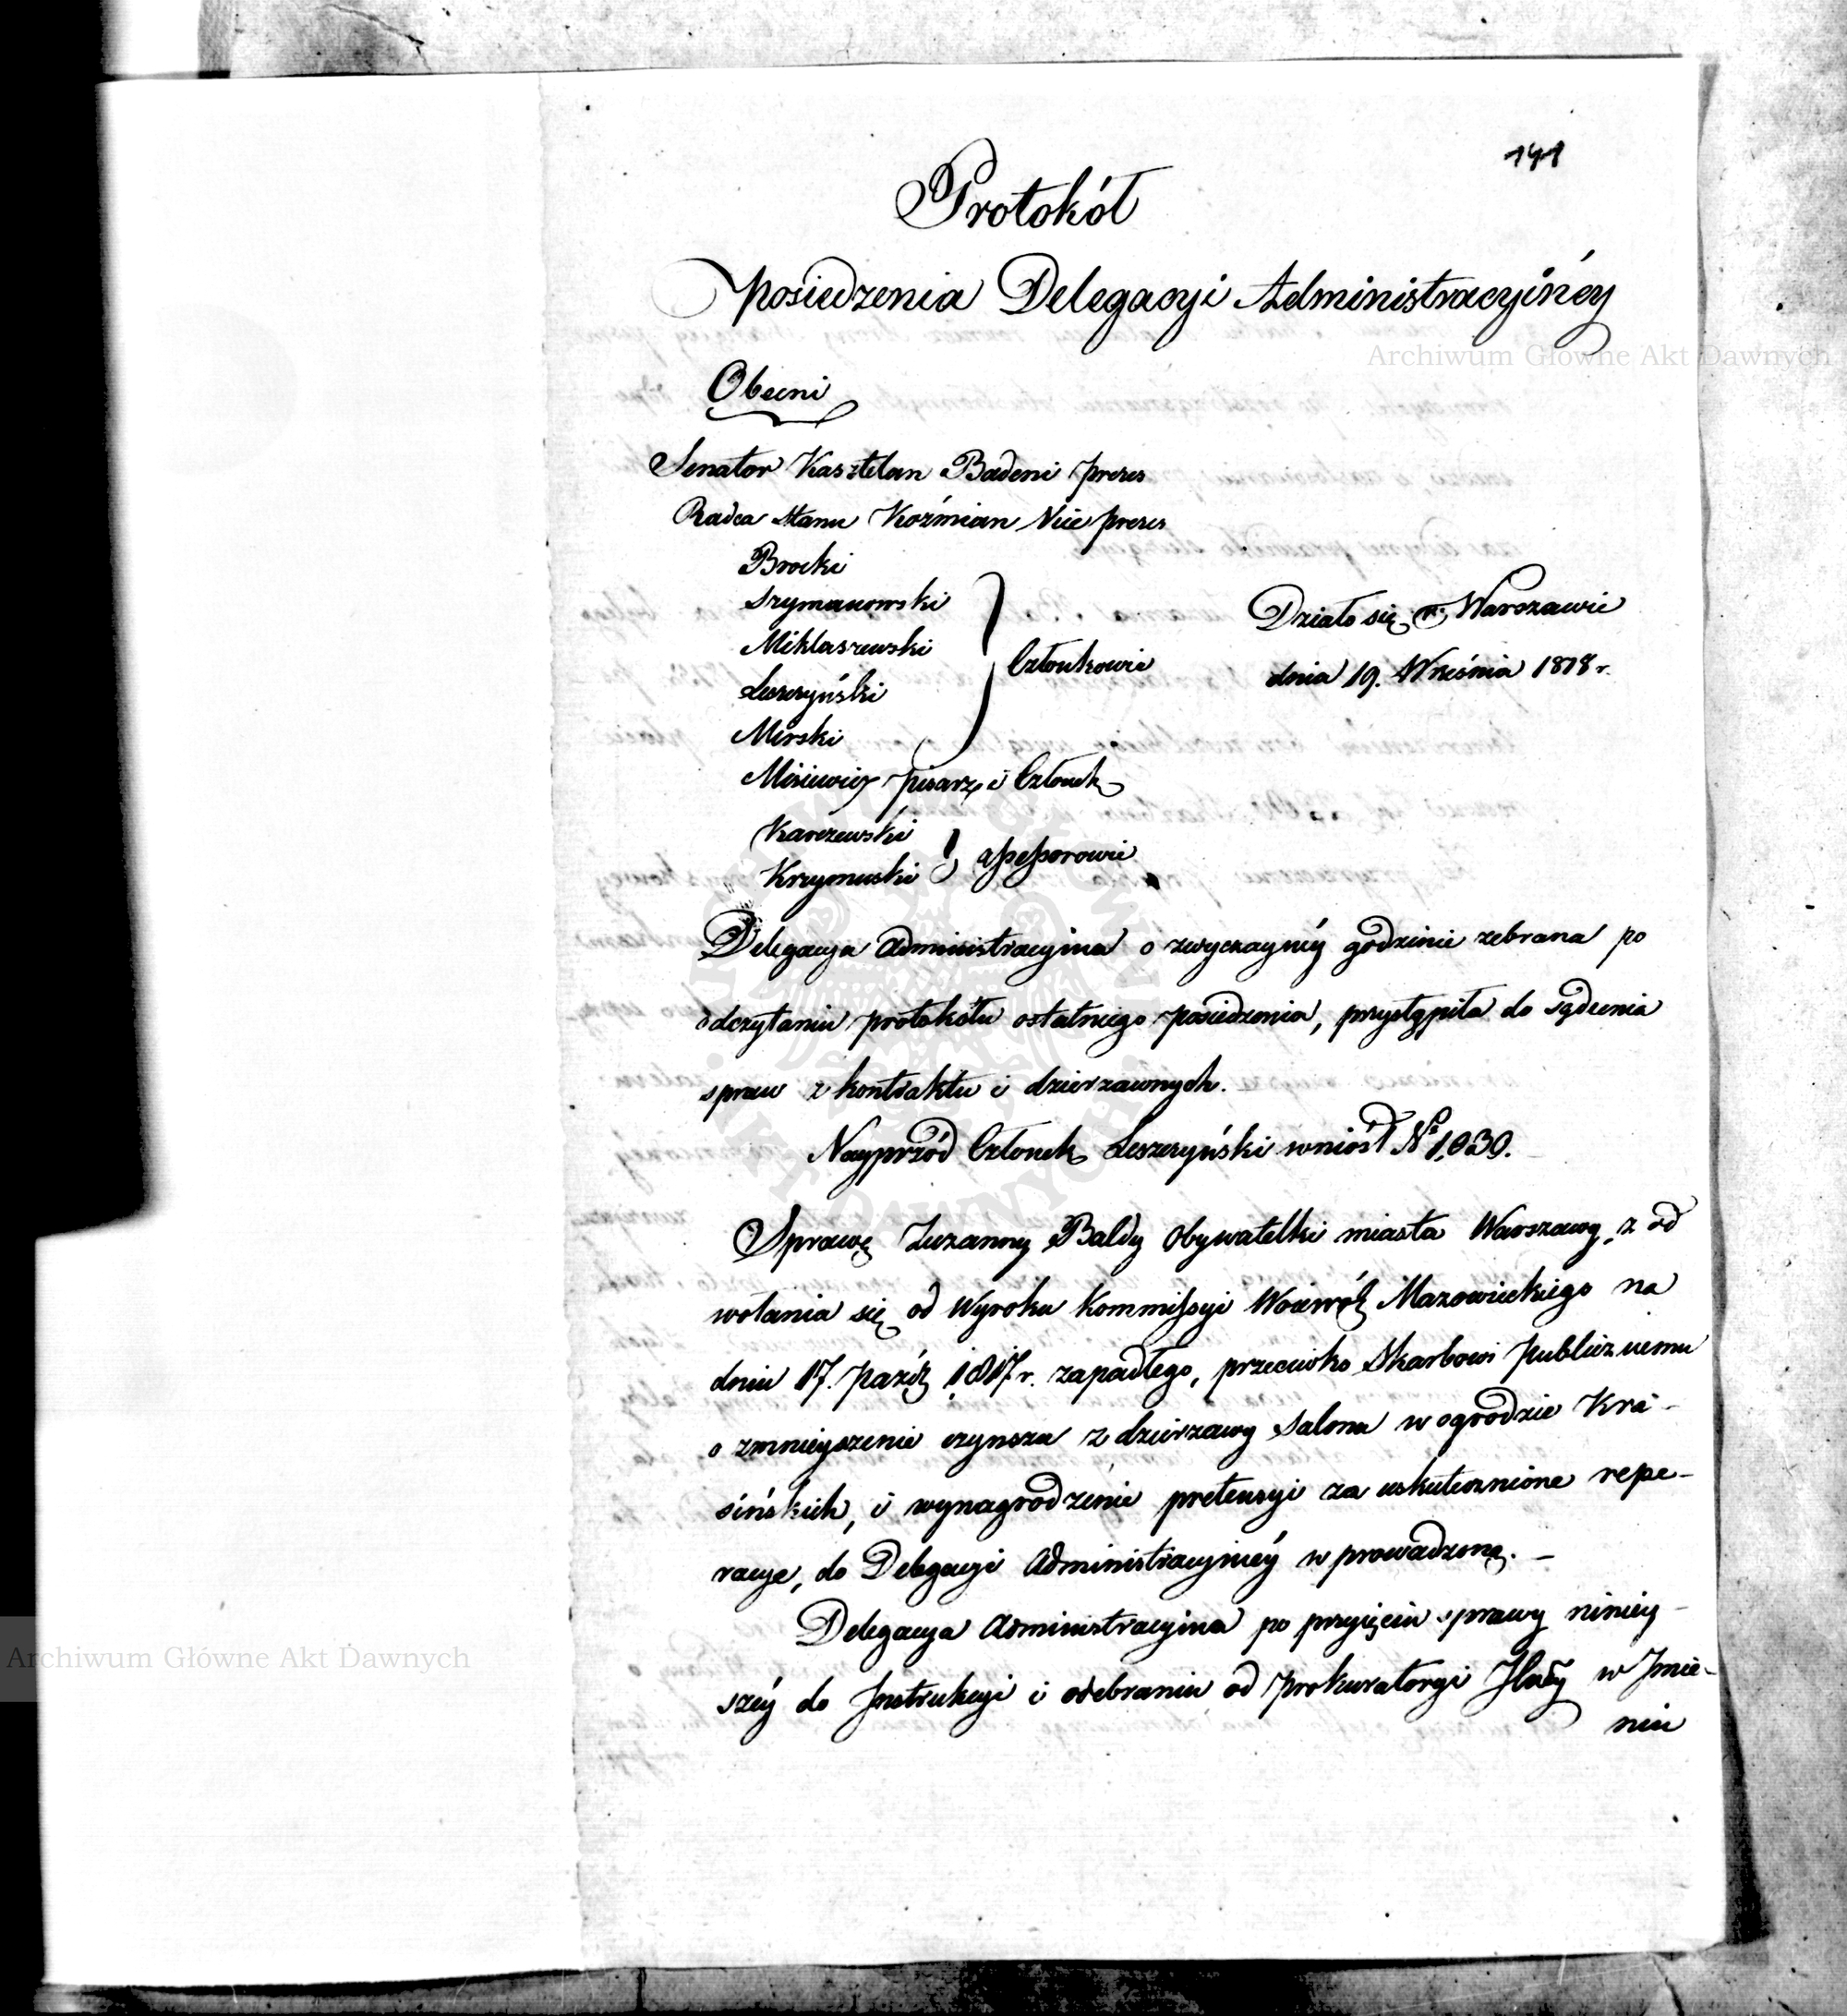 141
Protokół
posiedzenia Delegacyi Administracyinéy
Obecni
Senator Kasztelan Badeni Prezes
Radca Stanu Koźmian Vice prezes
Brocki
Szymanowski
Miklaszewski
Leszczyński
Mirski
Członkowie
Działo się w Warszawie
dnia 19. Września 1818 r.
Misiewicz pisarz i Członek
Karczewski
Krzymuski
assessorowie
Delegacya Administracyina o zwyczaynéy godzinie zebrana po
odczytaniu protokółu ostatniego posiedzenia, przystąpiła do sądzenia
spraw z kontraktu i dzierzawnych.
Nayprzód Członek Leszczyński wniósł No 1,030.
Sprawę Zuzanny Baldy Obywatelki miasta Warszawy, z od
wołania się od Wyroku Kommissyi Woiewódz Mazowieckiego na
dniu 17. Paźdz 1817 r. zapadłego, przeciwko Skarbowi publicznemu
o zmnieyszenie czynszu z dzierzawy Salonu w ogrodzie Kra-
sińskich, i wynagrodzenie pretensyi za uskutecznione repe-
racye, do Delegacyi Administracyinéy wprowadzoną. –
Delegacya Administracyina po przyięciu sprawy niniey-
széy do Instrukcyi i odebraniu od Prokuratoryi w Jmie-
niu
Archiwum Główne Akt Dawnych
Archiwum Główne Akt Dawnych